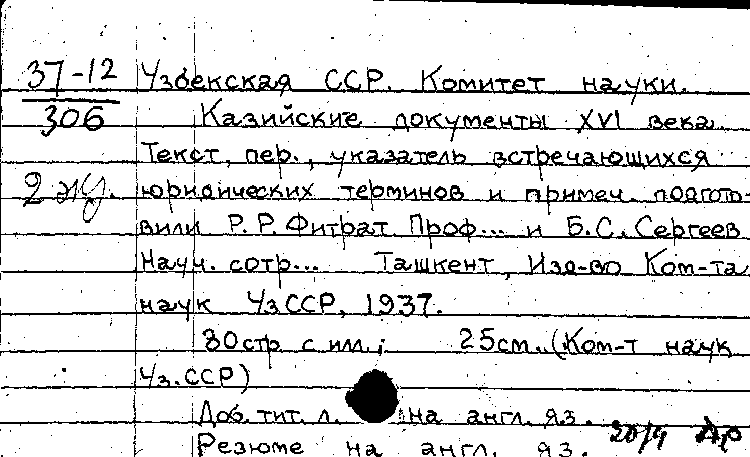 37-12 Узбекская ССР. Комитет науки.
306 Казийские документы XVI века
Текст, пер., указатель встречающихся
2 юридических терминов и примеч. подгото-
вили Р. Р. Фитрат Проф... и Б. С. Сергеев
Науч. сотр... Ташкент, Изд-во Ком-та
наук УзССР, 1937.
80 стр с илл; 25см. (Ком-т наук
Уз. ССР)
Доб. тит. л. на англ. яз.
Резюме на англ. яз. 20/4